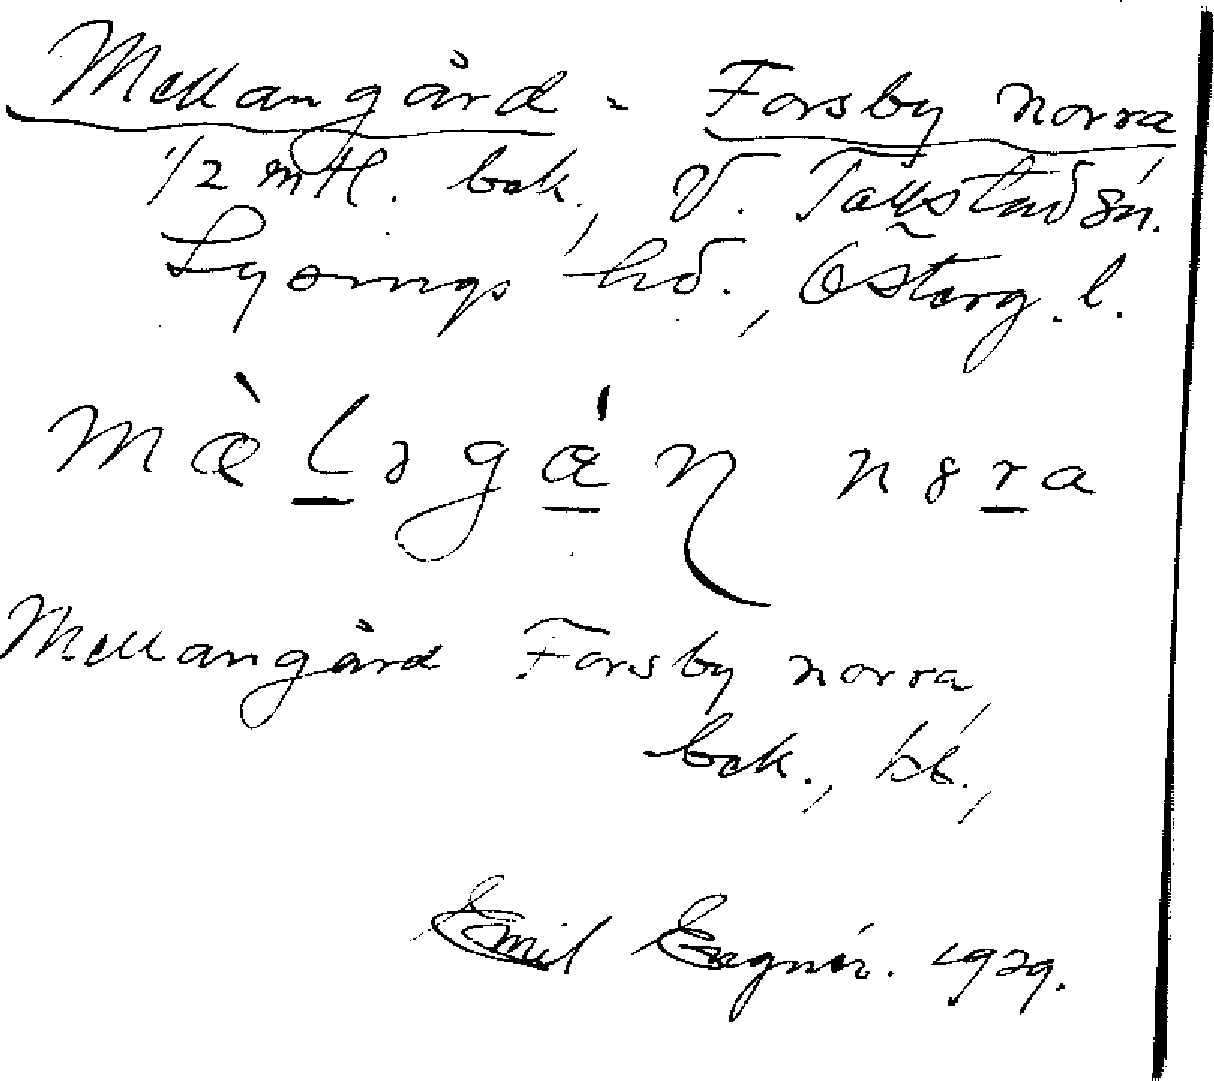 Mellangård - Forsby norra
1/2 mtl. bek., V. Tollstad sn.
Lysings hd., Österg. l.
Mellangård Forsby norra,
bek., bb.,
Emil 1929.